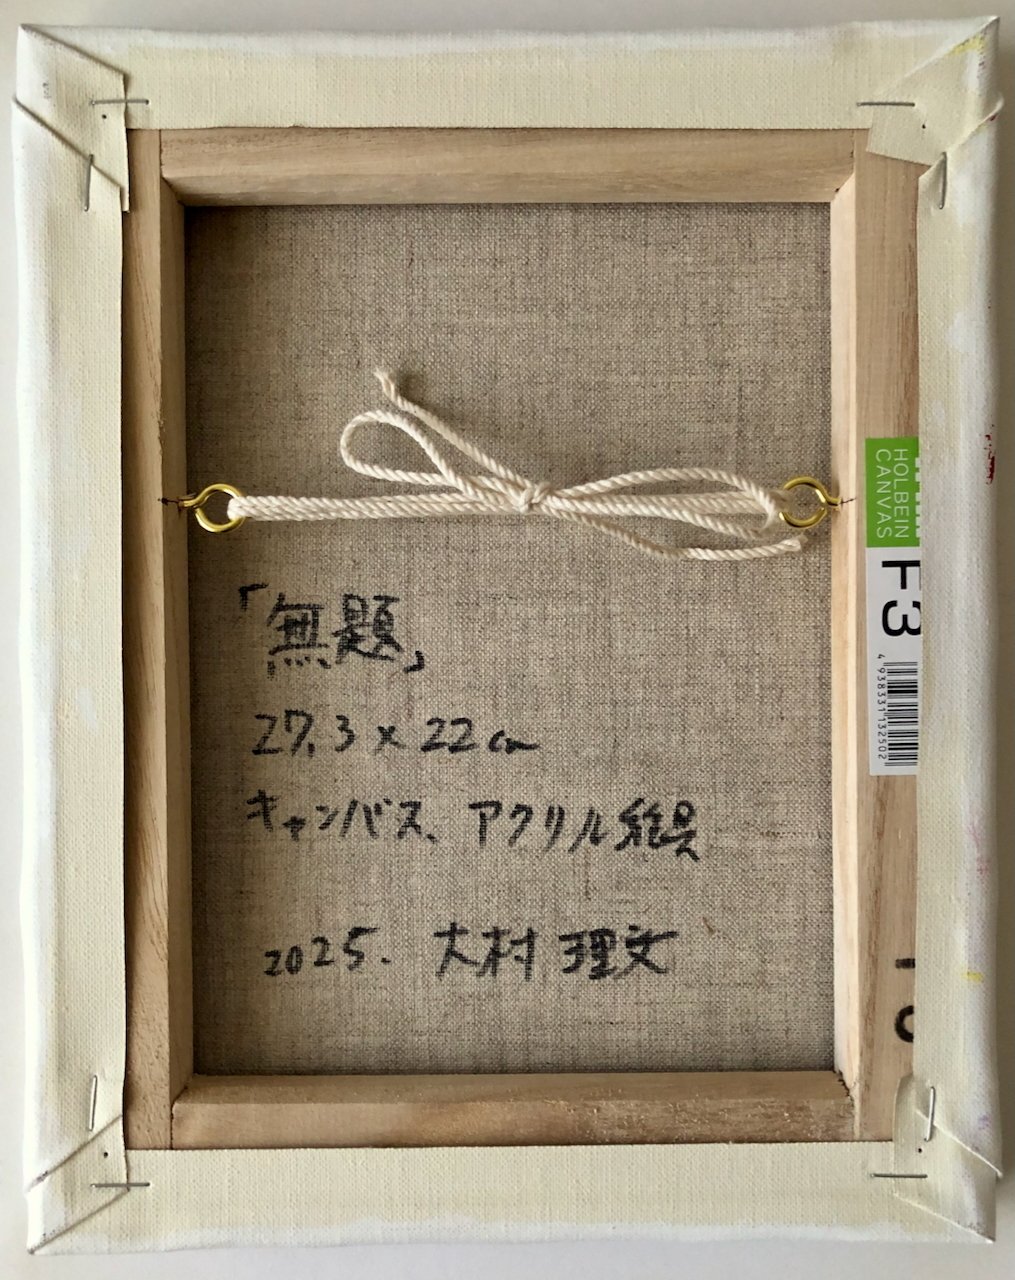 「無題」
27.3 × 22 cm
キャンバス、アクリル絵具
2025. 大村 理文
HOLBEIN
CANVAS
F3
4 938331132502